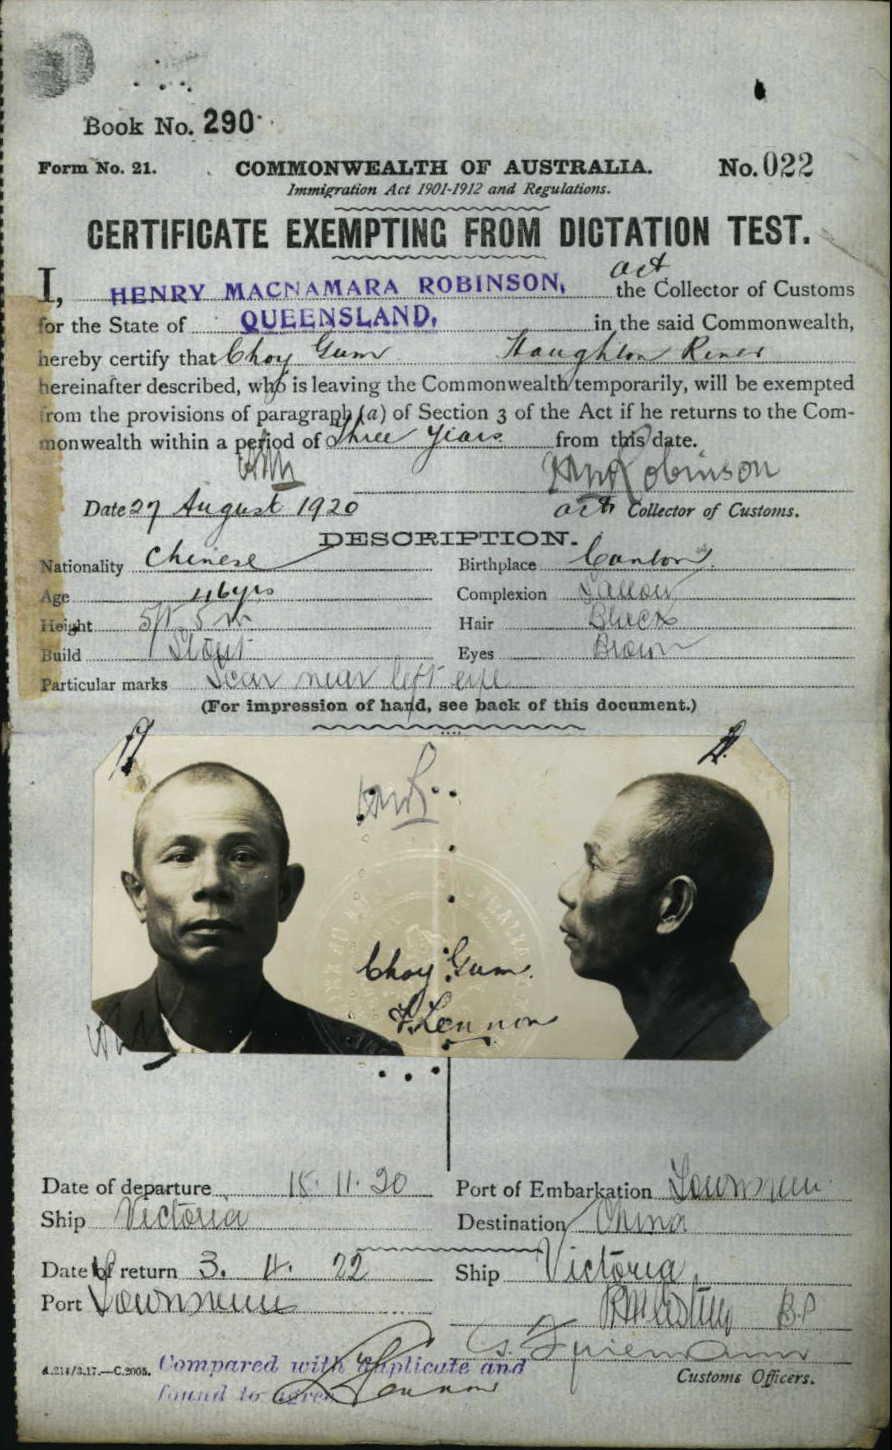 Book No. 290
Form No. 21. COMMONWEALTH OF AUSTRALIA. No. 022
Immigration Act 1901-1912 and Regulations.
CERTIFICATE EXEMPTING FROM DICTATION TEST.
act
I, HENRY MACNAMARA ROBINSON, the Collector of Customs
for the State of QUEENSLAND, in the said Commonwealth,
hereby certify that Choy Gum Houghton River
hereinafter described, who is leaving the Commonwealth temporarily, will be exempted
from the provisions of paragraph (a) of Section 3 of the Act if he returns to the Com-
monwealth within a period of three years from this date.
HMR HMRobinson
Date 27 August 1920 act Collector of Customs.
DESCRIPTION.
Nationality Chinese Birthplace Canton
Age 46 yrs Complexion Sallow
Height 5ft 5 in Hair Black
Build Stout Eyes Brown
Particular marks Scar near left eye
(For impression of hand, see back of this document.)
HMR
Choy Gum.
Lennon
Date of departure 18.11.20 Port of Embarkation Townsville
Ship Victoria Destination China
Date of return 3. 4. 22 Ship Victoria
Port Townsville B.P
Customs Officers.
A.214/3.17.—C.2005. Compared with duplicate and
found to agree Lennon